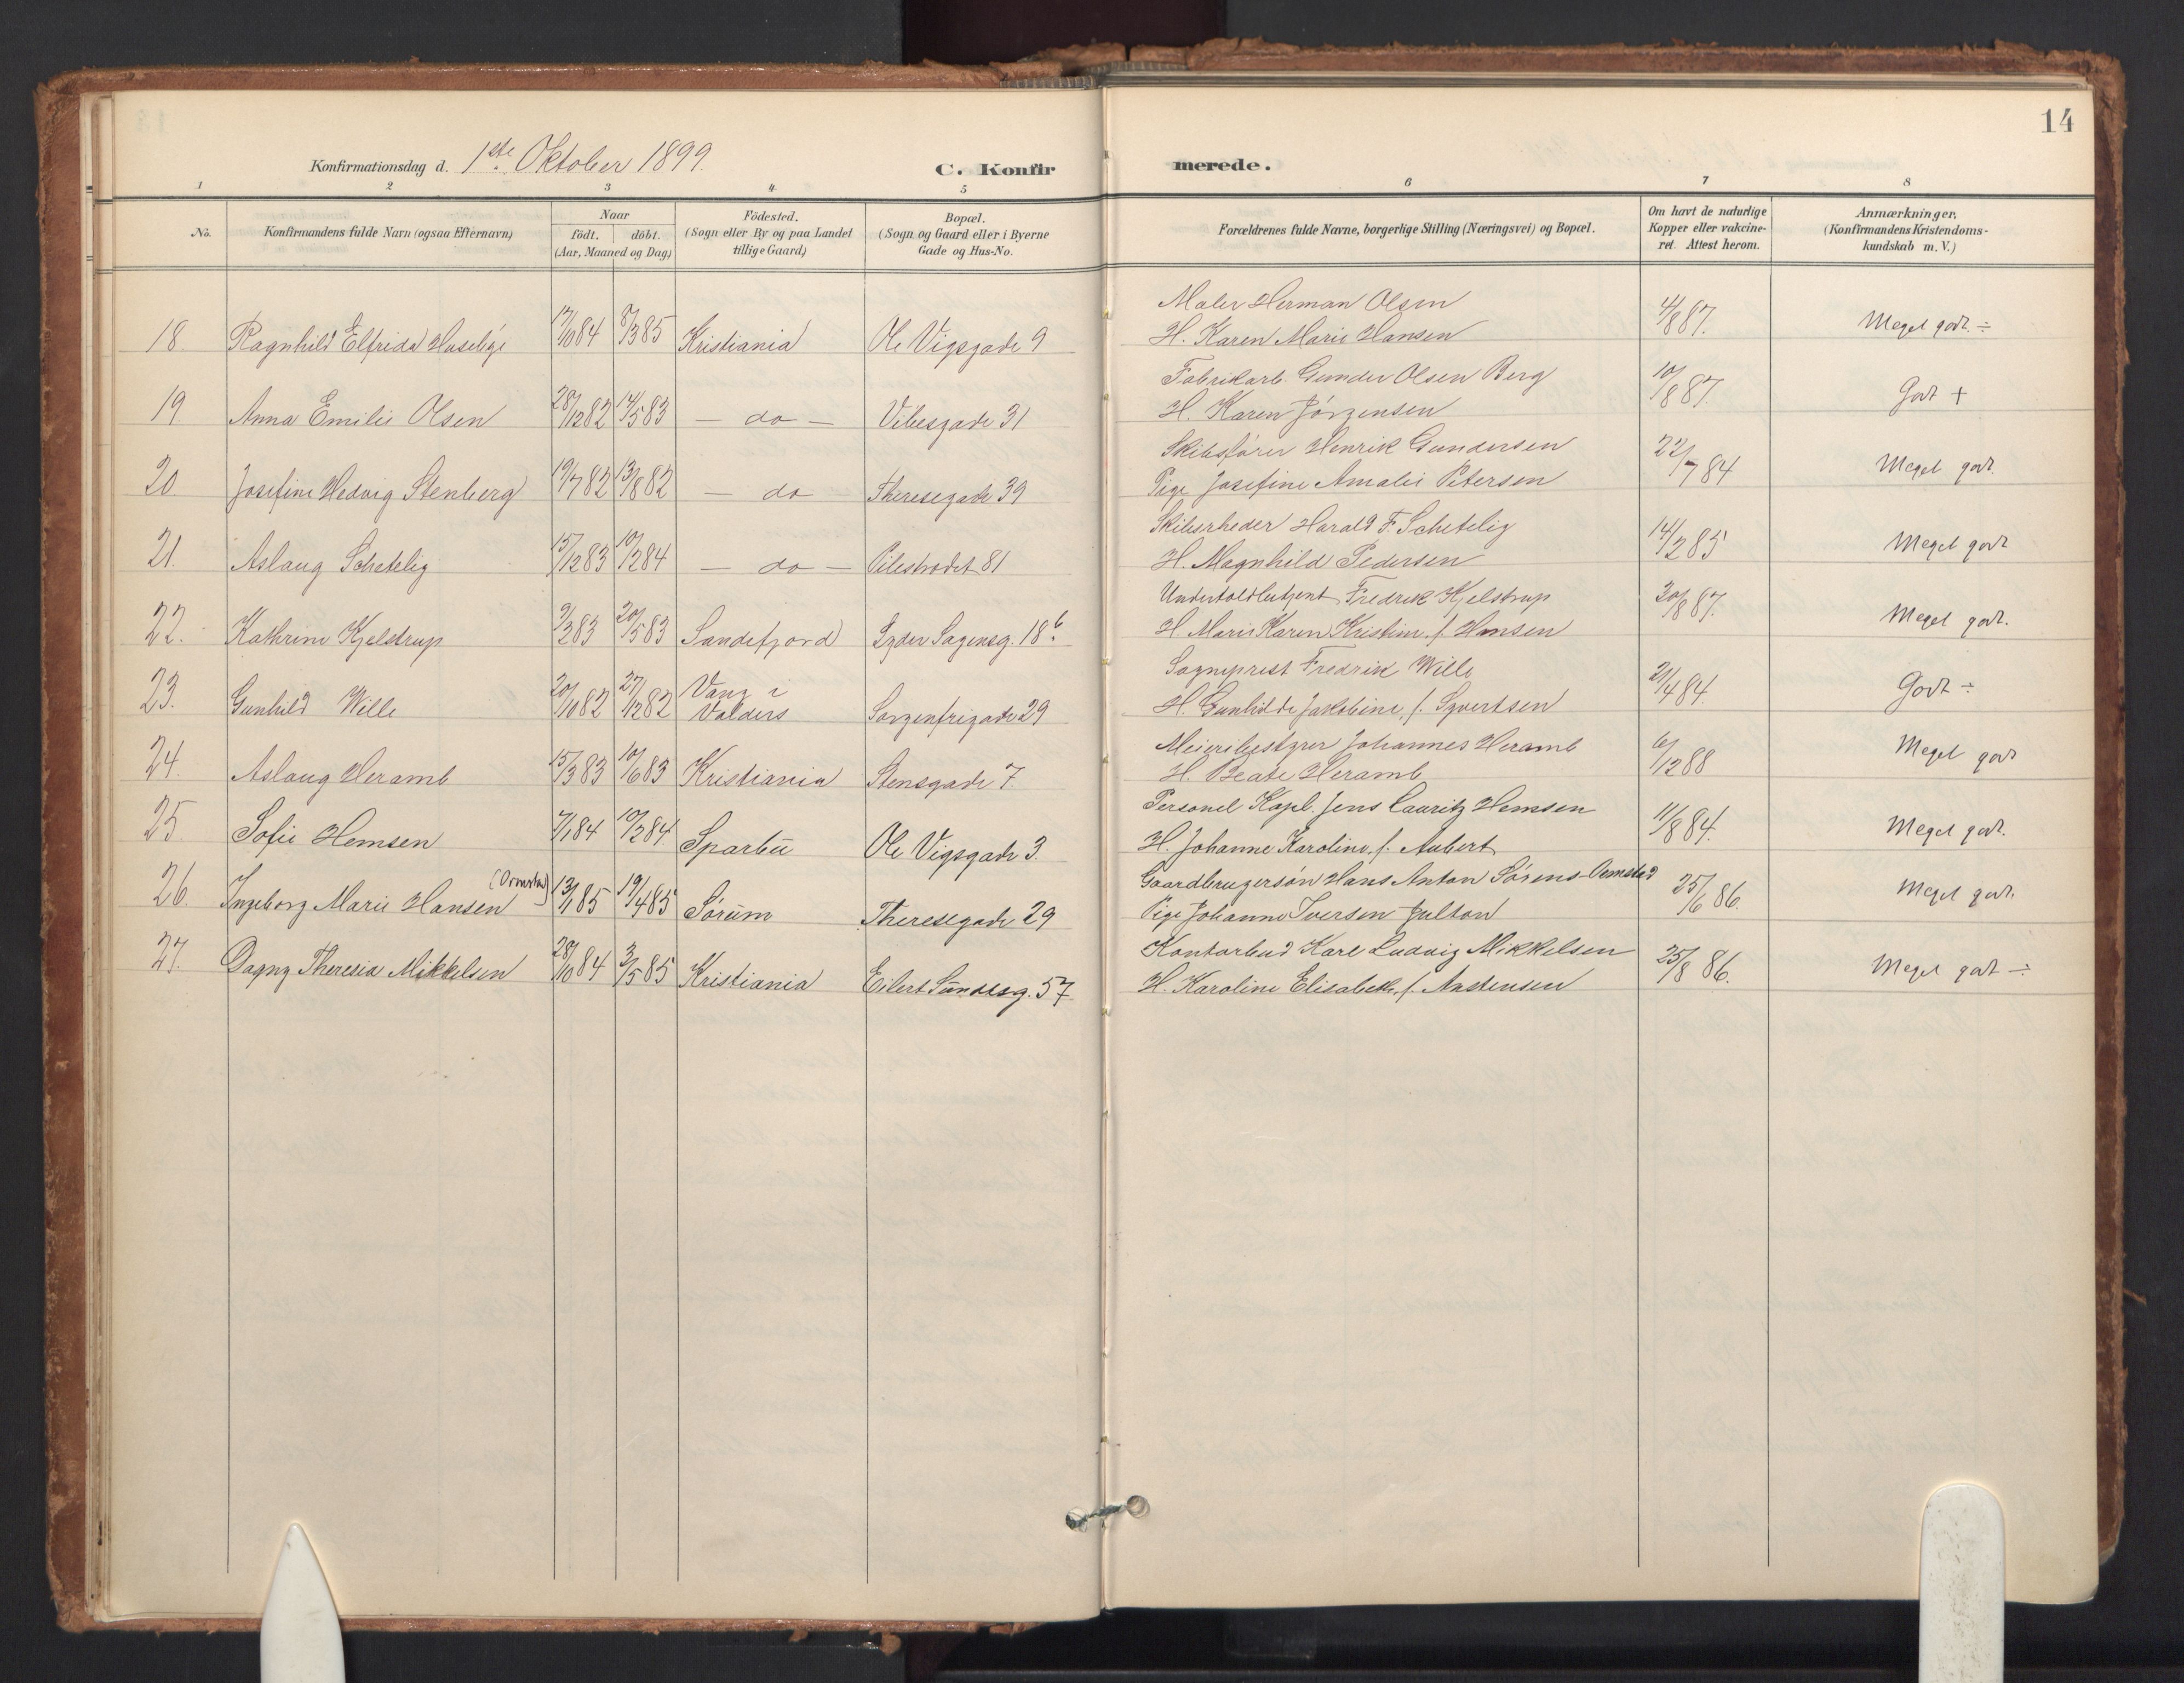 14
Konfirmationsdag d. 1ste Oktober 1899.
C. Konfir
merede.
1 2 3 4 5 6 7 8
No.
Konfirmandens fulde Navn (ogsaa Efternavn)
Naar
födt. döbt.
(Aar, Maaned og Dag)
Födested.
(Sogn eller By og paa Landet
tillige Gaard)
Bopæl.
(Sogn og Gaard eller i Byerne
Gade og Hus-No.
Forældrenes fulde Navne, borgerlige Stilling (Næringsvei) og Bopæl.
Om havt de naturlige
Kopper eller vakcine-
ret. Attest herom.
Anmærkninger,
(Konfirmandens Kristendoms-
kundskab m. V.)
Maler Herman Olsen
18 Ragnhild Elfrida Husebye 17/10 84 8/3 85 Kristiania Ole Vigsgade 9 H. Karen Marie Hansen 4/8 87. Meget godt. ÷
Fabrikarb. Gunder Olsen Berg
19 Anna Emilie Olsen 28/12 82 14/5 83 — do — Vibesgade 31 H. Karen Jörgensen 10/8 87. Godt +
Skibsförer Henrik Gundersen
20 Josefine Hedvig Stenberg 19/7 82 13/8 82 — do — Theresegade 39 Pige Josefine Amalie Petersen 22/7 84 Meget godt.
Skibsrheder Harald F. Schetelig
21. Aslaug Schetelig 15/12 83 10/2 84 — do — Pilestrædet 81 H. Magnhild Pedersen 14/2 85 Meget godt
Undertoldbetjent Fredrik Kjelstrup
22. Kathrine Kjelstrup 9/2 83 20/5 83 Sandefjord Lyder Sagensg. 18b H. Marie Karen Kristine, f. Hansen 30/8 87. Meget godt.
Sogneprest Fredrik Wille
23. Gunhild Wille 20/10 82 27/12 82 Vang i Valders Sorgenfrigade 29 H. Gunhilde Jakobine, f. Syvertsen 21/4 84. Godt ÷
Meieribestyrer Johannes Heramb
24. Aslaug Heramb 15/3 83 10/6 83 Kristiania Stensgade 7. H. Beate Heramb 6/12 88 Meget godt
Personel Kapl. Jens Lauritz Hemsen
25. Sofie Hemsen 7/1 84 10/2 84. Sparbu Ole Vigsgade 3. H. Johanne Karoline, f. Aubert 11/8 84. Meget godt.
(Ormstad) Gaardbrugersön Hans Anton Sörens-Ormstad
26. Ingeborg Marie Hansen 13/1 85 19/4 85 Sörum Theresegade 29 Pige Johanne Iversen Julton 25/6 86. Meget godt.
Kontorbud Karl Ludvig Mikkelsen
27. Dagny Theresia Mikkelsen 28/10 84 3/5 85 Kristiania Eilert Sundtsg. 57. H. Karoline Elisabeth, f. Anstensen 25/8 86. Meget godt ÷